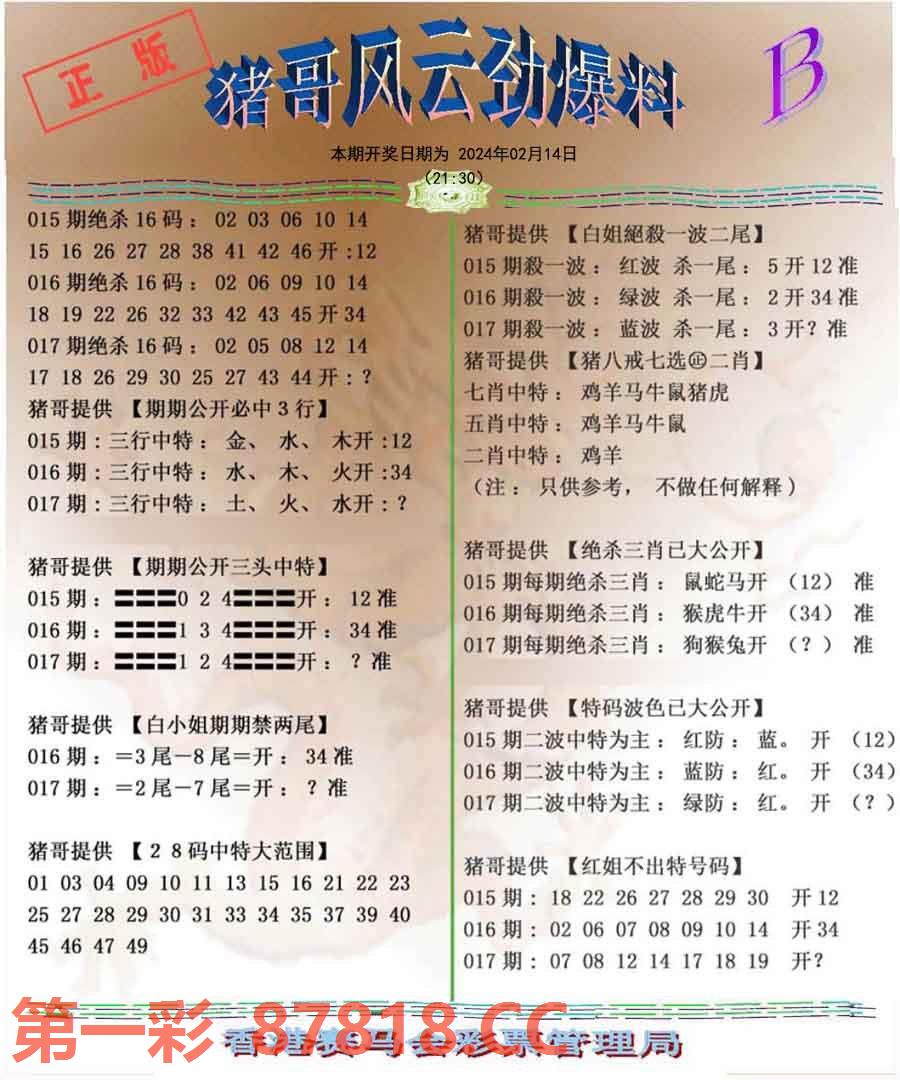 正版
猪哥风云劲爆料
B
本期开奖日期为 2024年02月14日
(21:30)
015期绝杀16码: 02 03 06 10 14
15 16 26 27 28 38 41 42 46开:12
016期绝杀16码: 02 06 09 10 14
18 19 22 26 32 33 42 43 45开34
017期绝杀16码: 02 05 08 12 14
17 18 26 29 30 25 27 43 44开:?
猪哥提供【期期公开必中3行】
015期:三行中特: 金、 水、 木开:12
016期:三行中特: 水、 木、 火开:34
017期:三行中特: 土、 火、 水开:?
猪哥提供【期期公开三头中特】
015期:〓〓〓0 2 4〓〓〓开: 12准
016期:〓〓〓1 3 4〓〓〓开: 34准
017期:〓〓〓1 2 4〓〓〓开: ?准
猪哥提供【白小姐期期禁两尾】
016期:=3尾一8尾=开: 34准
017期:=2尾一7尾=开: ?准
猪哥提供【28码中特大范围】
01 03 04 09 10 11 13 15 16 21 22 23
25 27 28 29 30 31 33 34 35 37 39 40
45 46 47 49
猪哥提供【白姐絕殺一波二尾】
015期殺一波: 红波 杀一尾: 5开12准
016期殺一波: 绿波 杀一尾: 2开34准
017期殺一波: 蓝波 杀一尾: 3开?准
猪哥提供【猪八戒七选㊣二肖】
七肖中特: 鸡羊马牛鼠猪虎
五肖中特: 鸡羊马牛鼠
二肖中特: 鸡羊
(注: 只供参考, 不做任何解释)
猪哥提供【绝杀三肖已大公开】
015期每期绝杀三肖: 鼠蛇马开 (12) 准
016期每期绝杀三肖: 猴虎牛开 (34) 准
017期每期绝杀三肖: 狗猴兔开 (?) 准
猪哥提供【特码波色已大公开】
015期二波中特为主: 红防: 蓝。 开 (12)
016期二波中特为主: 蓝防: 红。 开 (34)
017期二波中特为主: 绿防: 红。 开 (?)
猪哥提供【红姐不出特号码】
015期: 18 22 26 27 28 29 30 开12
016期: 02 06 07 08 09 10 14 开34
017期: 07 08 12 14 17 18 19 开?
第一彩 87818.CC
香港赛马会彩票管理局